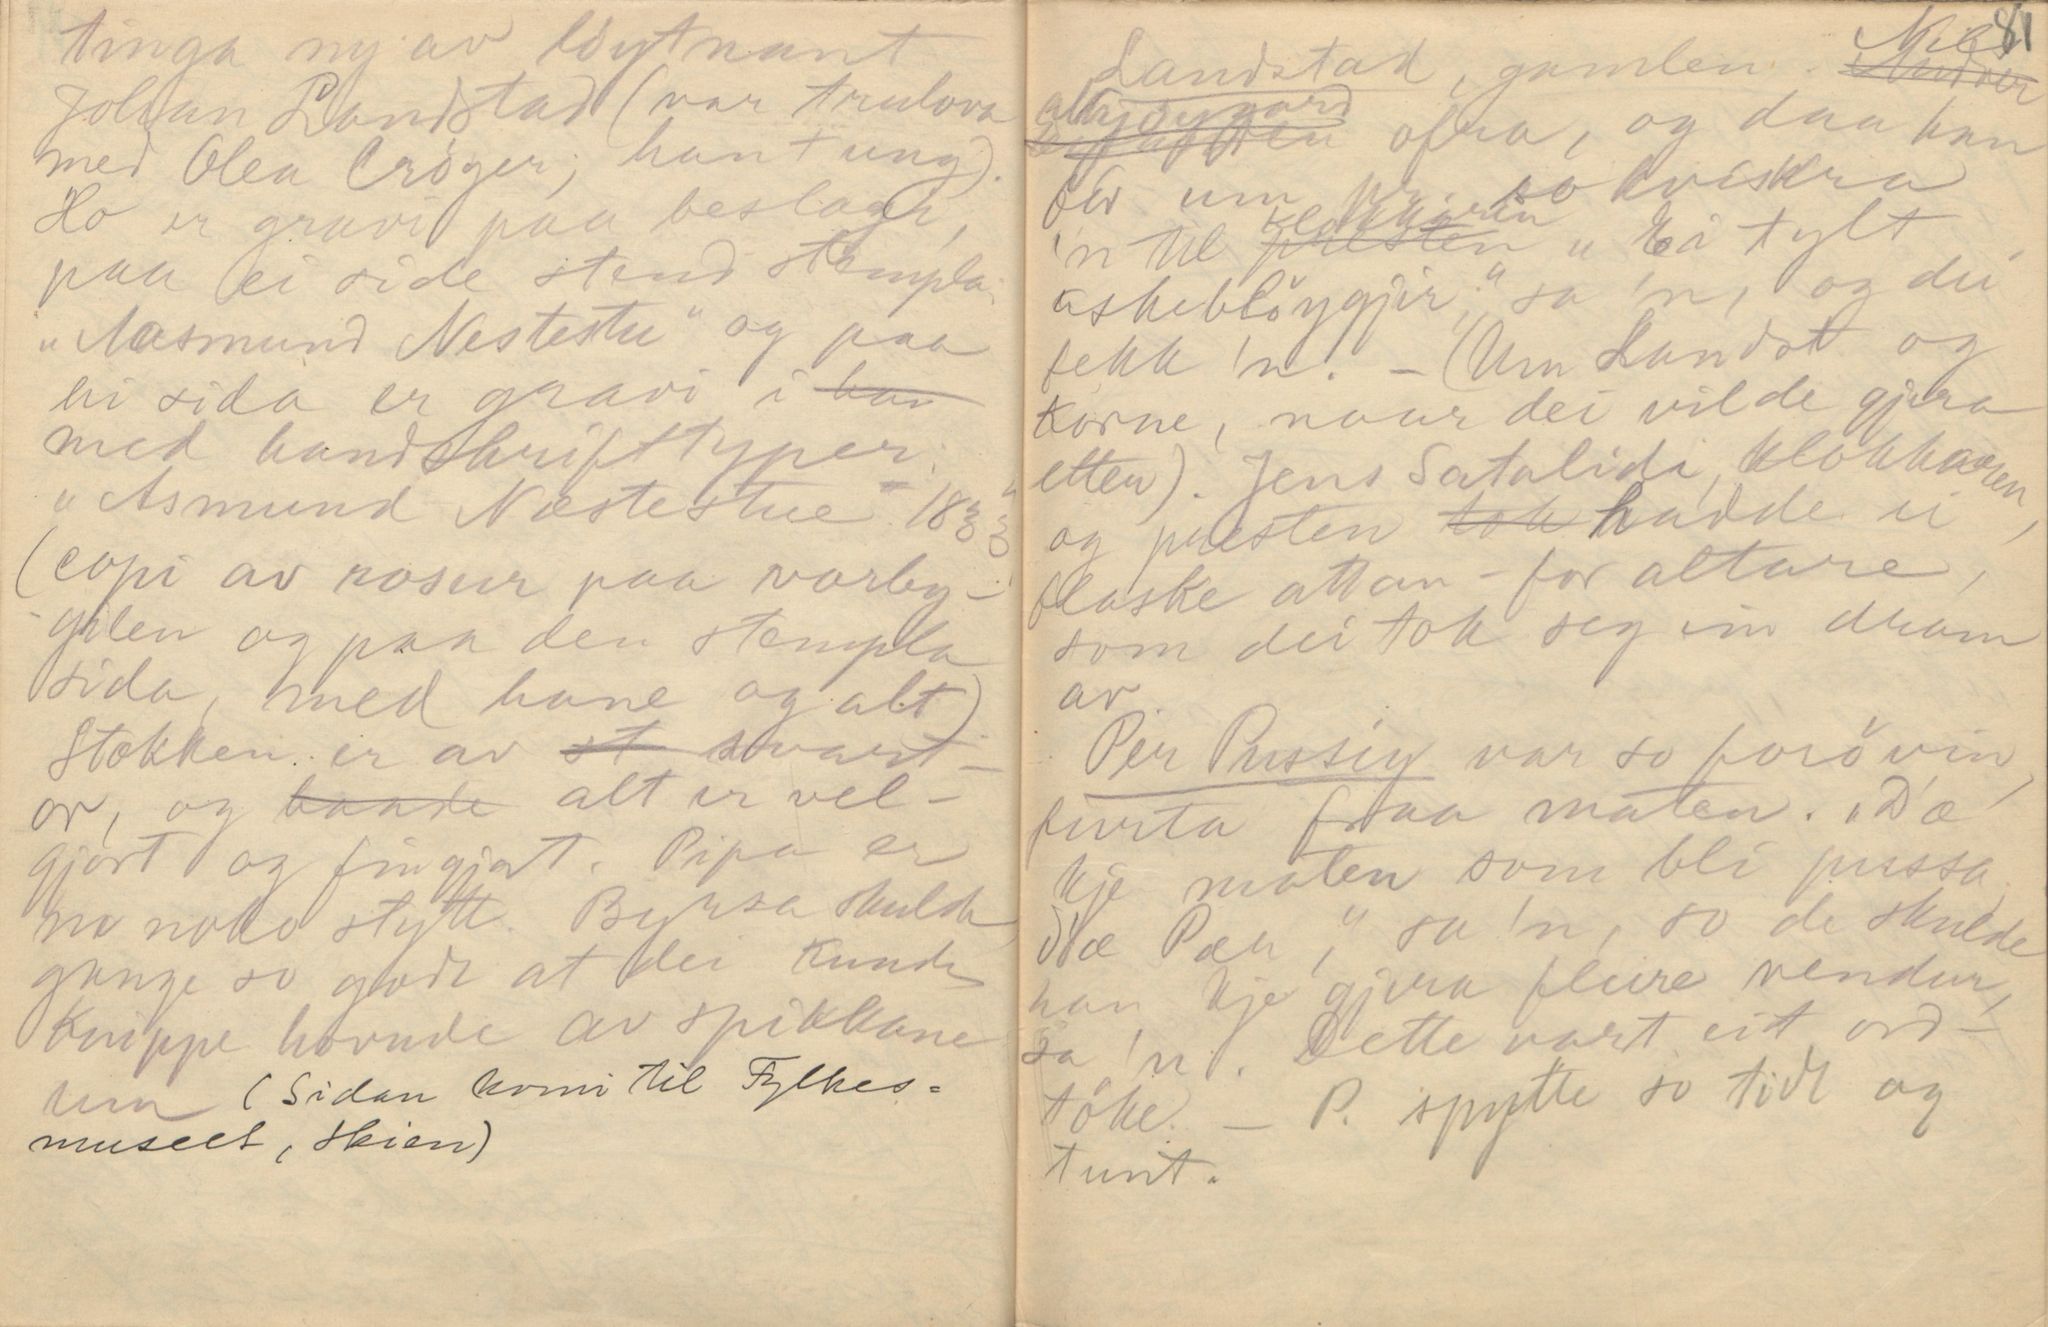 tinga ny av löytnant
Johan Landstad (var trulova
med Olea Cröger; han t ung).
Ho er gravi paa beslagi,
paa ei side stend stempla:
"Aasmund Nestestu" og paa
hi sida er gravi i han
med handskrifttyper:
"Asmund Næstestue" 1833
(copi av rosur paa varby-
gjilen og paa den stempla
sida, med hane og alt)
Stokken er av st svart-
or, og baade alt er vel-
gjort og fingjort. Pipa er
no noko stytt. Byrsa skulde
gange so godt at dei kunde
knippe hovude av spikkane
um (Sidan komi til Fylkes-
museet, Skien)
81
Landstad, gamlen. Nils
ofra, og daa han
för um kr. so kviskra
'n til presten klokkarin "Ei tylt
askeblöygjir," sa 'n, og dei
fekk 'n. – (Um Landst og
korne, naar dei vilde gjera
etten). Jens Satalidi, klokkaren,
og presten tok hadde ei
flaske attan-for altare,
som dei tok seg ein dram
av.
Per Pussig var so foröVin,
furta fraa maten. "D'æ
kje maten som bli pussa
d'æ Pær," sa 'n, so de skulde
han kje gjera fleire vendur,
sa 'n. Dette vart eit ord-
töke. – P. spytte so tidt og
tunt.